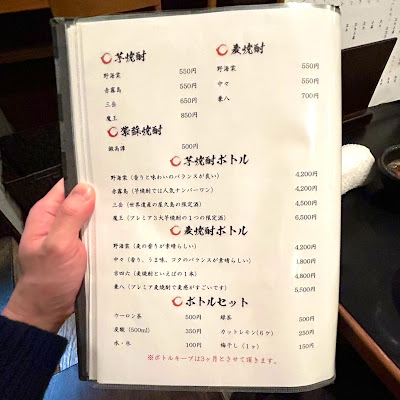 芋焼酎
野海棠 550円
赤霧島 550円
三岳 650円
魔王 850円
麦焼酎
野海棠 550円
中々 550円
兼八 700円
紫蘇焼酎
鍛高譚 500円
芋焼酎ボトル
野海棠（香りと味わいのバランスが良い） 4,200円
赤霧島（芋焼酎では人気ナンバーワン） 4,200円
三岳（世界遺産の屋久島の限定酒） 4,500円
魔王（プレミア３大芋焼酎の１つの限定酒） 6,500円
麦焼酎ボトル
野海棠（麦の香りが素晴らしい） 4,200円
中々（香り、うま味、コクのバランスが素晴らしい） 4,800円
吉四六（麦焼酎といえばの１本） 4,800円
兼八（プレミア麦焼酎で麦感がすごいです） 5,500円
ボトルセット
ウーロン茶 500円 緑茶 500円
炭酸（500ml） 350円 カットレモン(６ケ) 250円
水・氷 100円 梅干し（１ヶ） 150円
※ボトルキープは3ヶ月とさせて頂きます。